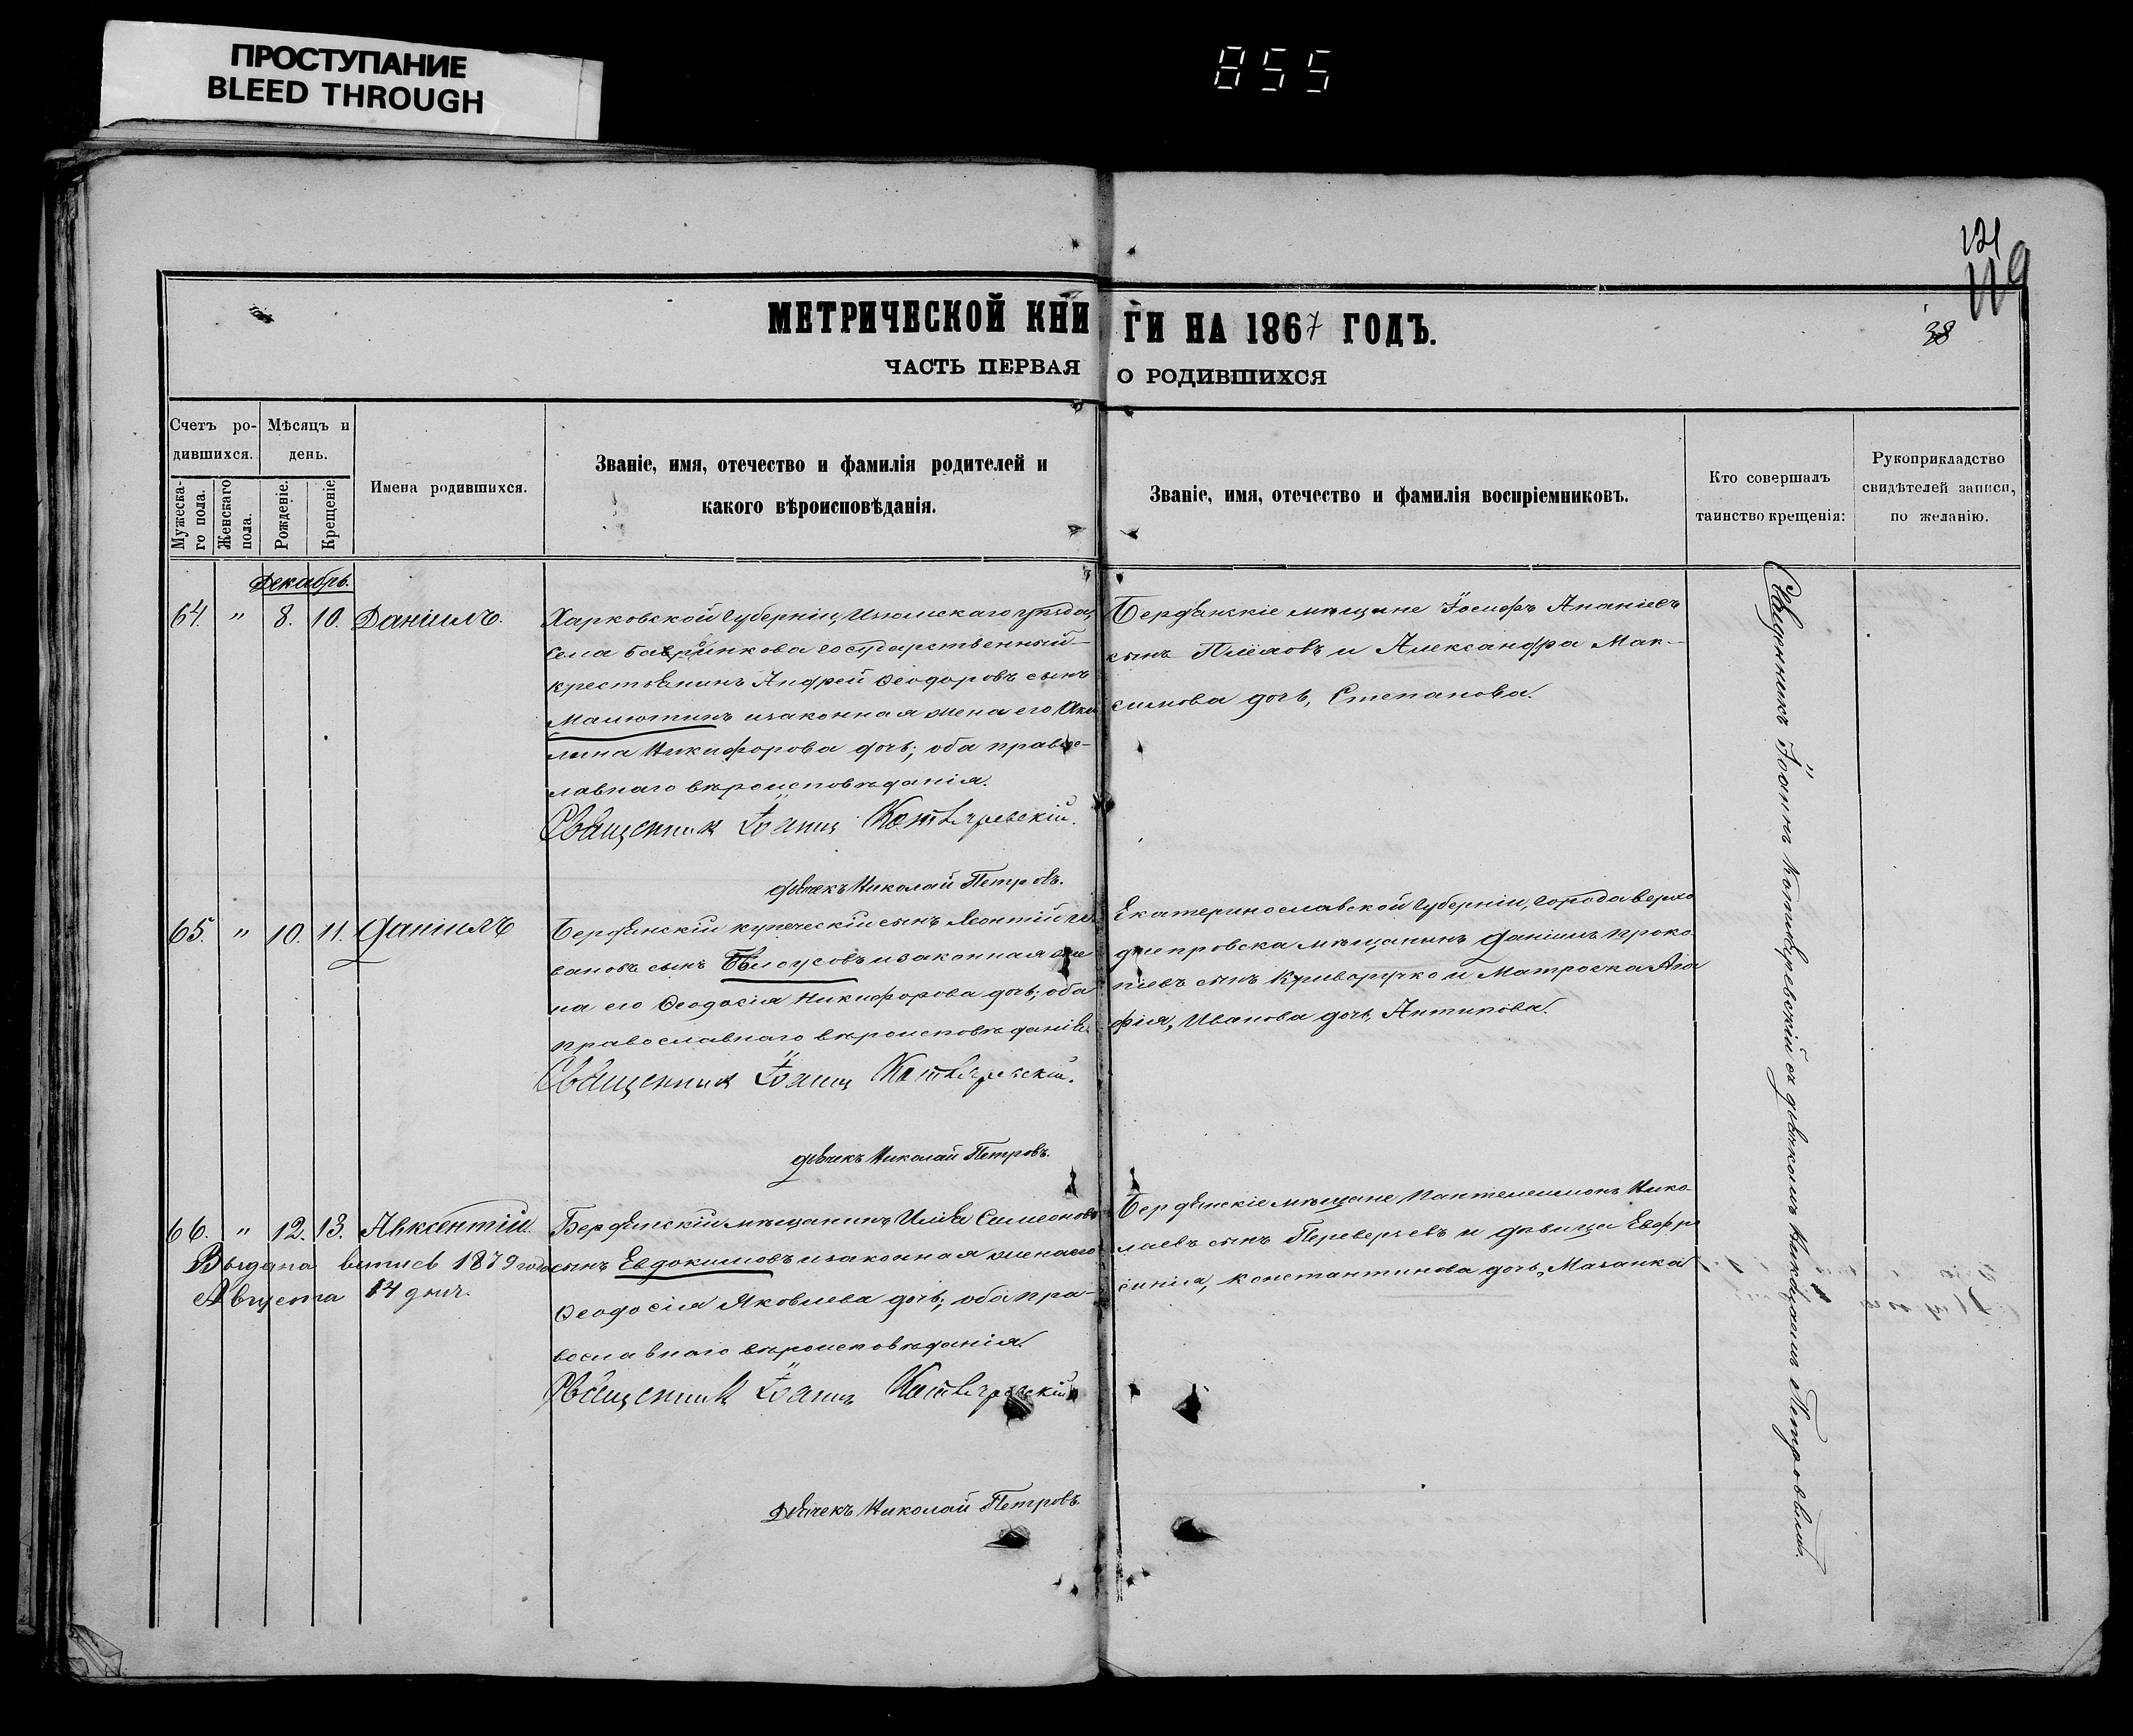 ПРОСТУПАНИЕ
BLEED THROUGH
855
121
119
38
МЕТРИЧЕСКОЙ КНИГИ НА 1867 ГОДЪ.
ЧАСТЬ ПЕРВАЯ О РОДИВШИХСЯ
Счетъ ро-
дившихся.
Мужеска-
го пола.
Женскаго
пола.
Мѣсяцъ и
день.
Рожденіе.
Крещеніе
Имена родившихся.
Званіе, имя, отечество и фамилія родителей и
какого вѣроисповѣданія.
Званіе, имя, отечество и фамилія воспріемниковъ.
Кто совершалъ
таинство крещенія:
Рукоприкладство
свидѣтелей записи,
по желанію.
Декабрь.
64. " 8. 10. Даніилъ.
Харковской Губерніи, Изюмскаго уѣзда,
села государственный
крестьянинъ Андрей Ѳеодоровъ сынъ
Малютинъ и законная жена его Аки-
лина Никифорова дочь; оба правос-
лавнаго вѣроисповѣданія.
Священник Іоанн Котляревскій.
дьячекъ Николай Петровъ.
Бердянскіе мѣщане Іосифъ Ананіевъ
сынъ и Александра Мак-
симова дочь, Степанова.
65. " 10. 11. Даніилъ
Бердянскій купеческій сынъ Леонтій И-
вановъ сынъ Бѣлоусовъ и законная же
на его Ѳеодосія Никифорова дочь; оба
православнаго вѣроисповѣданія
Священник Іоанн Котляревскій.
дьячекъ Николай Петровъ.
Екатеринославской Губерніи, города Верхо
днепровска мѣщанинъ Даніилъ Проко
піевъ сынъ Криворучко и Матроска Ага
фія, Иванова дочь, Антипова.
66. " 12. 13. Авксентій.
Выдана выпись 1879 года
Августа 14 дня.
Бердянскій мѣщанинъ Илья Симеоновъ
сынъ Евдокимовъ и законная жена его
Ѳеодосія Яковлева дочь; оба пра-
вославнаго вѣроисповѣданія.
Священник Іоаннъ Котляревскій
Дьячекъ Николай Петровъ
Бердянскіе мѣщане Пантелеимонъ Нико-
лаевъ сынъ Переверзевъ и дѣвица Евфро
синія, Константинова дочь, Мазанка
Священникъ Іоаннъ Котляревскій съ дьячкомъ Николаемъ Петровымъ.